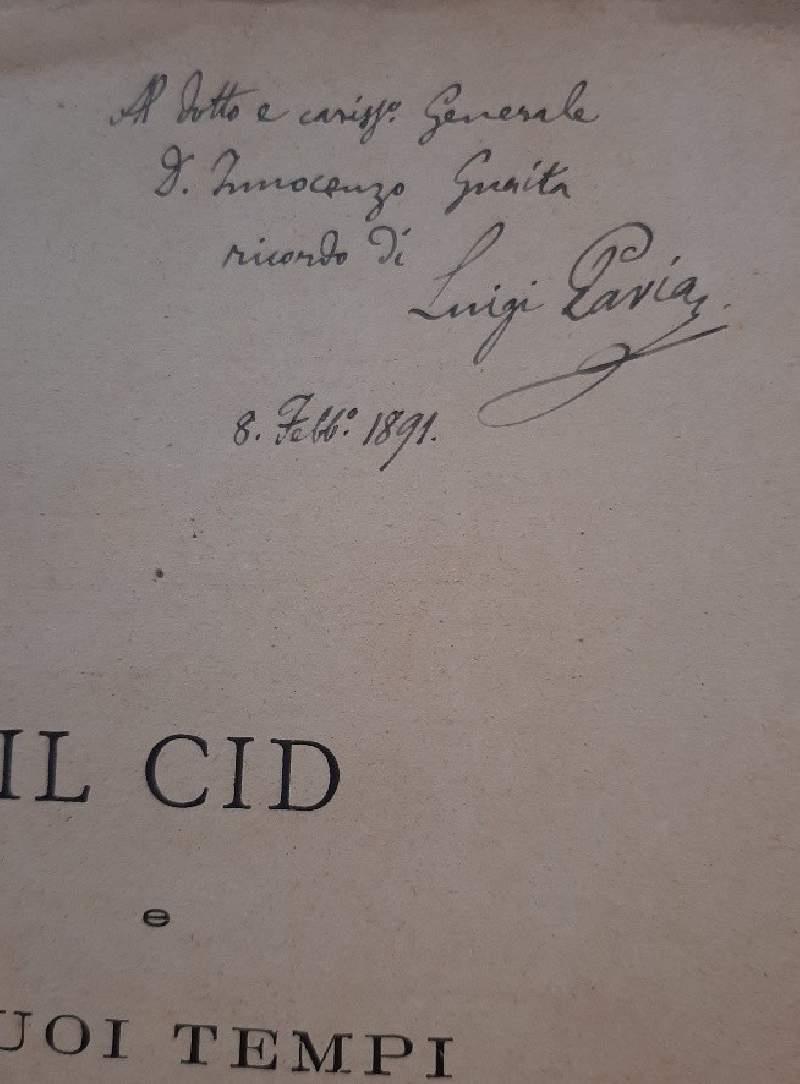 Al dotto e cariss.º Generale
D. Innocenzo Guaita
ricordo di
Luigi Pavia.
8. Febb.º 1891.
IL CID
e
UOI TEMPI